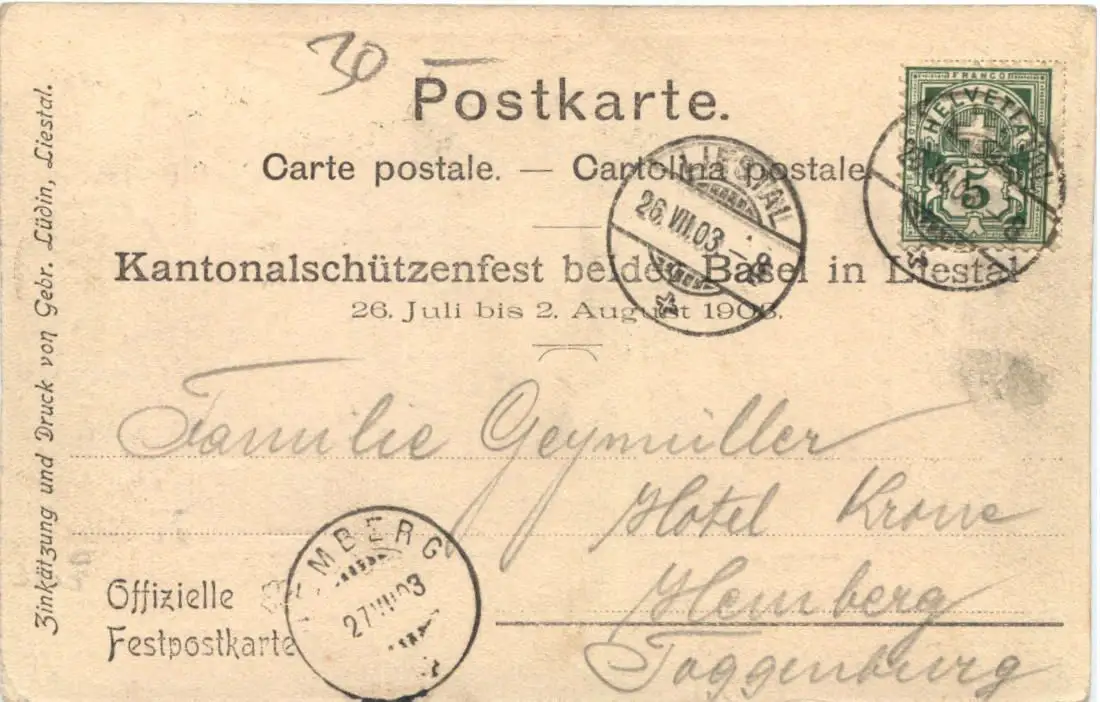 30
Postkarte.
FRANCO
HELVETIA
5
Carte postale. — Cartolina postale
LIESTAL
26.VII.03.–8
Kantonalschützenfest beider Basel in Liestal
26. Juli bis 2. August 1903.
Familie Geymüller
Hotel Krone
Hemberg
Toggenburg
HEMBERG
27 VII 03
Offizielle
Festpostkarte
Zinkätzung und Druck von Gebr. Lüdin, Liestal.